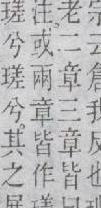 云倉我反也
老二章三章皆
注或兩章皆作瑳
瑳兮瑳兮其之展